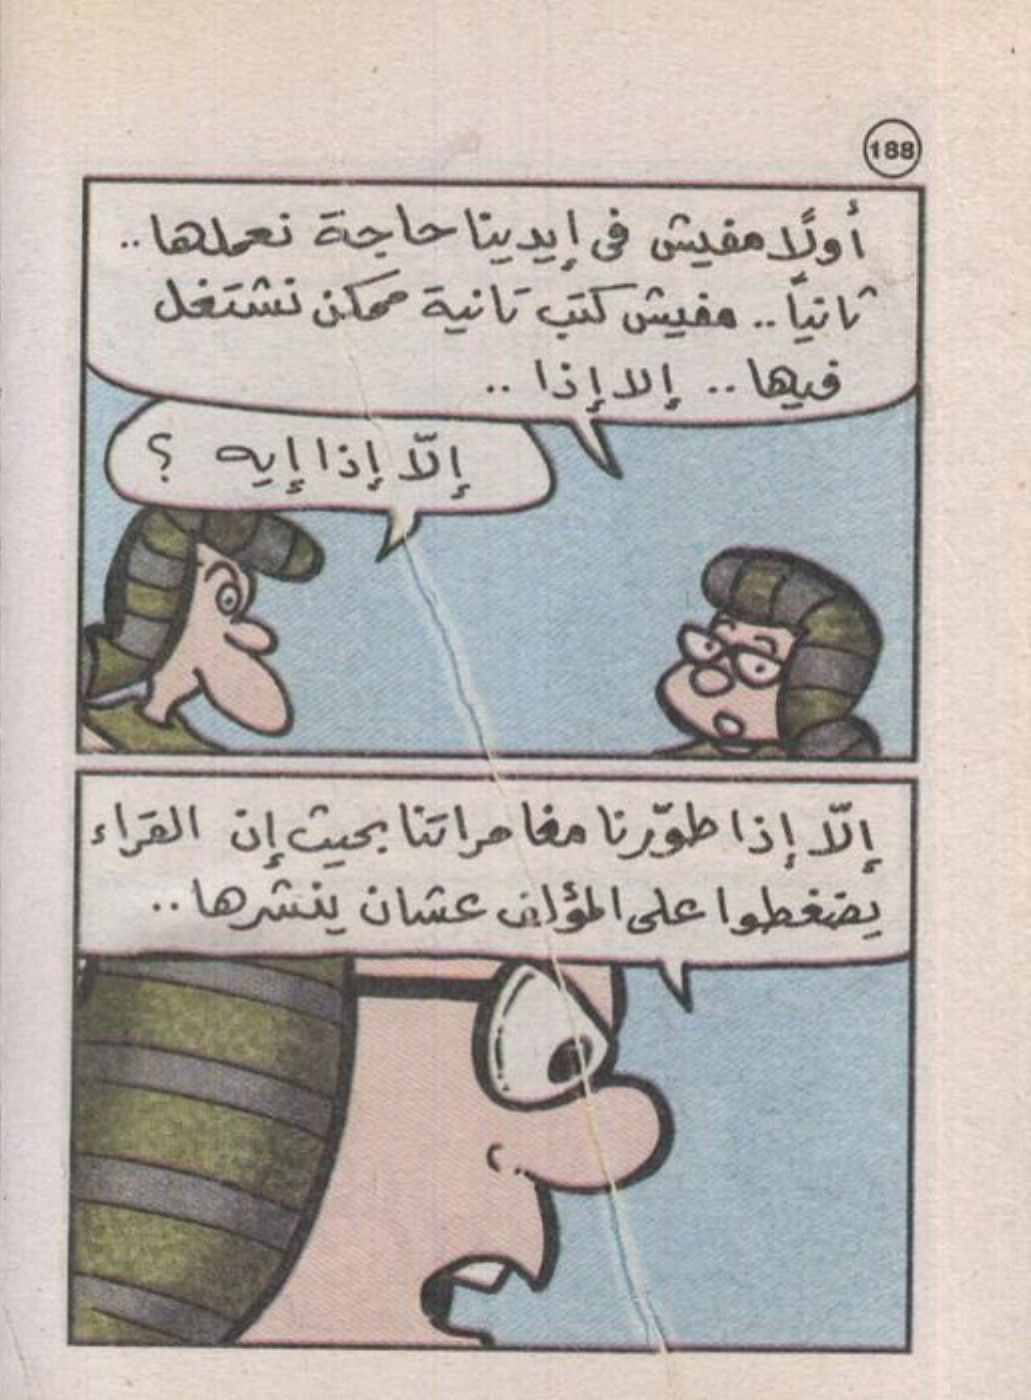 188
أولًا مفيش فى إيدينا حاجة نعملها..
ثانياً.. مفيش كتب تانية ممكن نشتغل
فيها.. إلا إذا ..
إلّا إذا إيه ؟
إلّا إذا طوّرنا مغامراتنا بحيث إن القراء
يضغطوا على المؤلف عشان ينشرها..